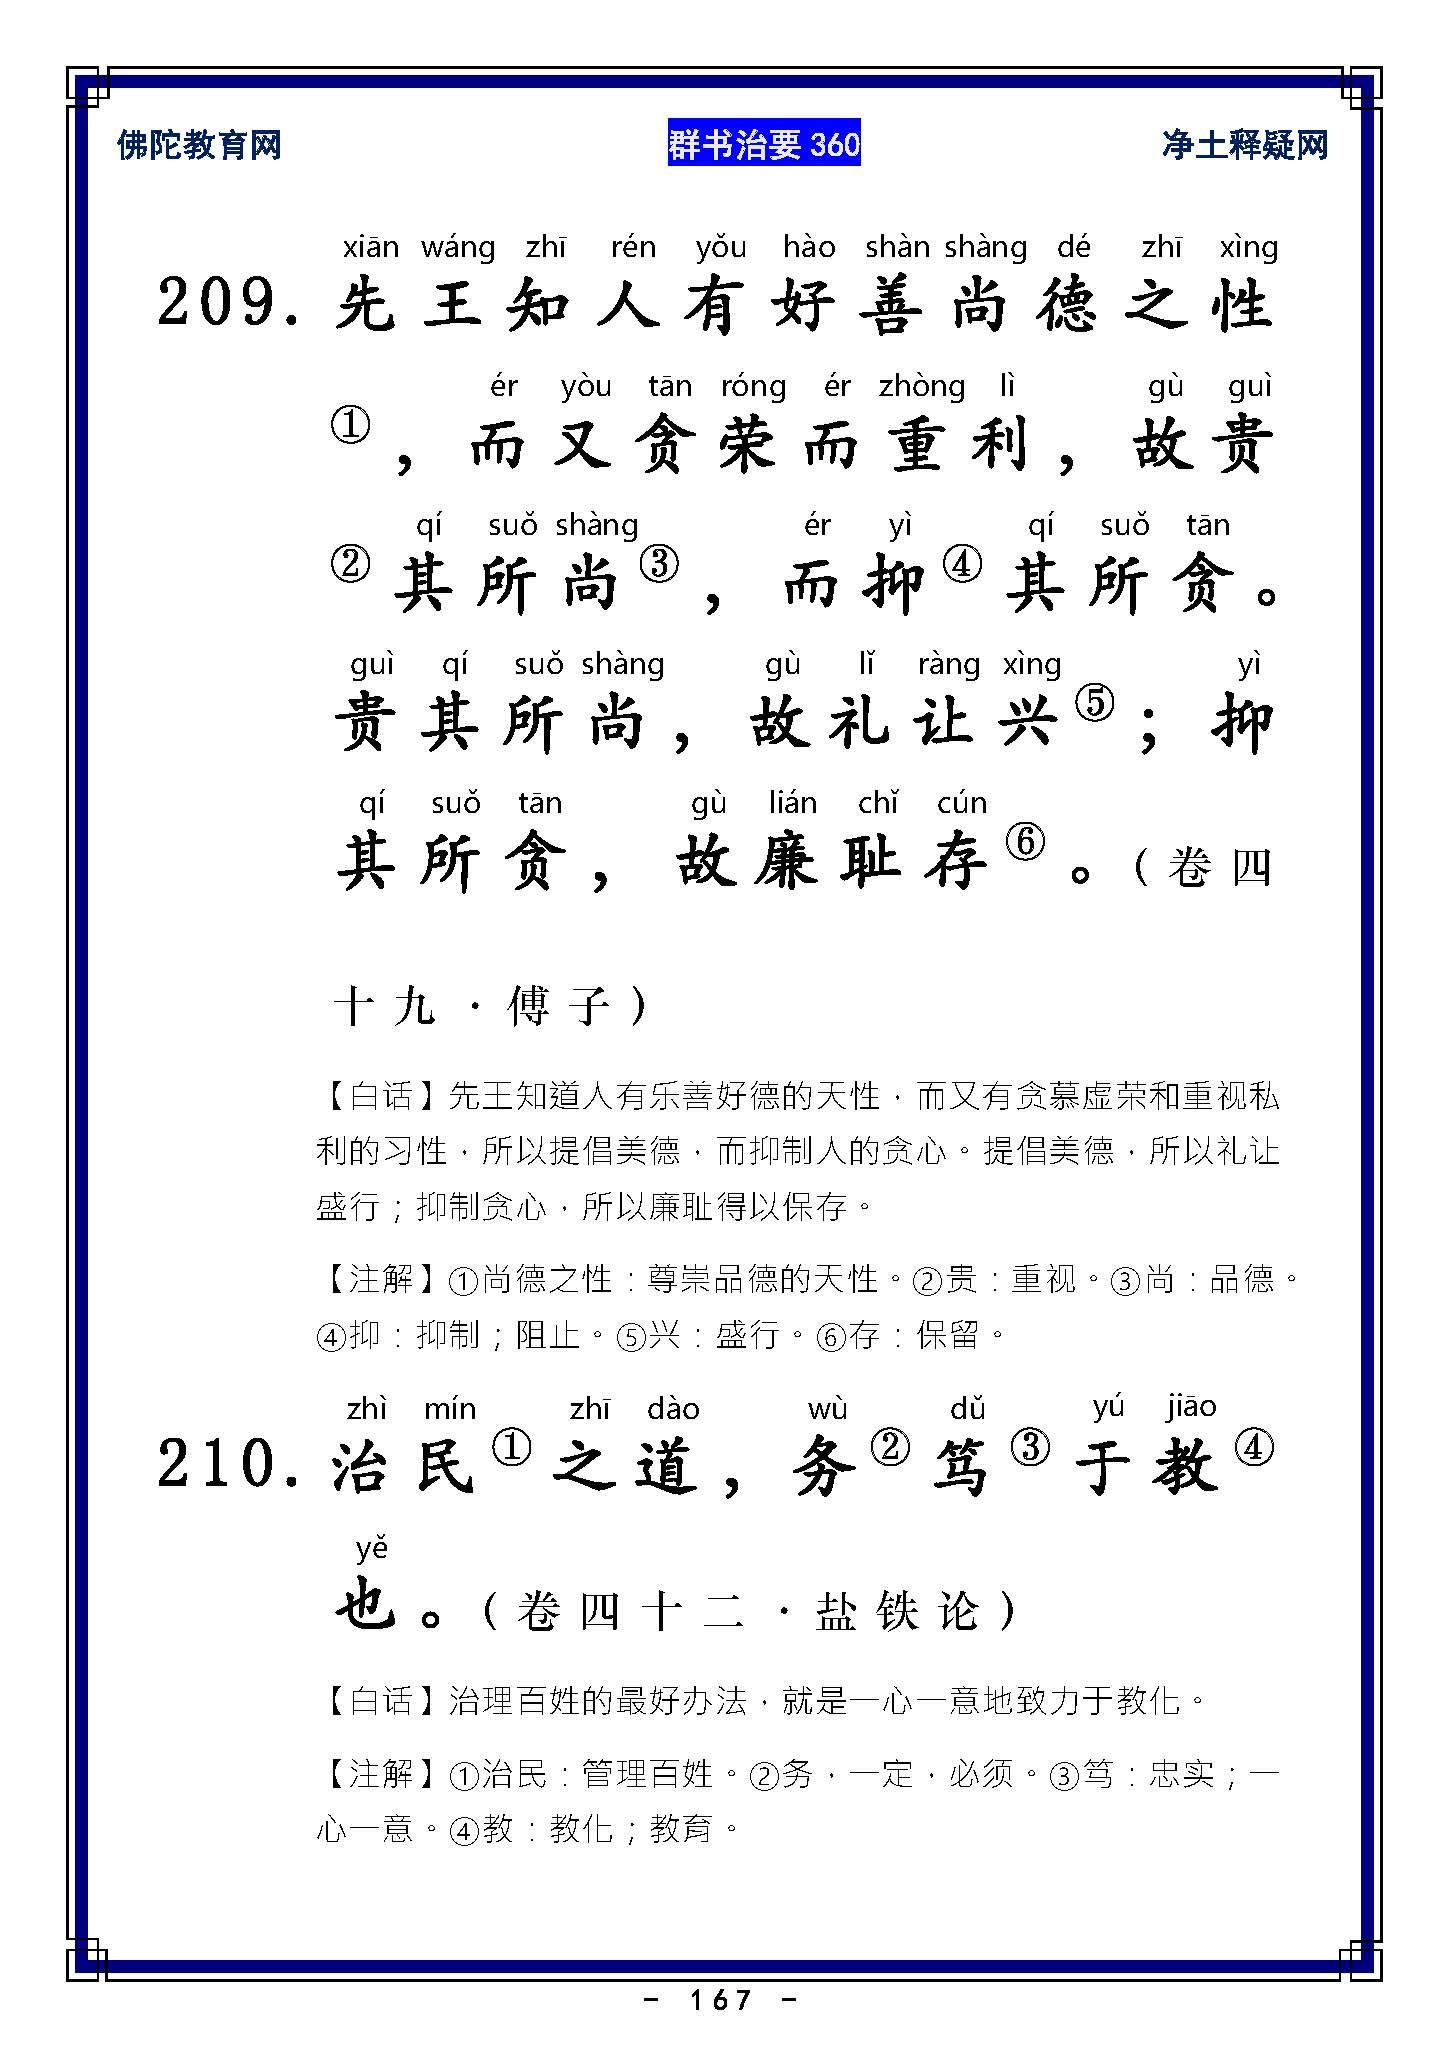 佛陀教育网 群书治要 360 净土释疑网
xiān wáng zhī rén yǒu hào shàn shàng dé zhī xìng
209. 先王知人有好善尚德之性
ér yòu tān róng ér zhòng lì gù guì
①，而又贪荣而重利，故贵
qí suǒ shàng ér yì qí suǒ tān
②其所尚③，而抑④其所贪。
guì qí suǒ shàng gù lǐ ràng xìng yì
贵其所尚，故礼让兴⑤；抑
qí suǒ tān gù lián chǐ cún
其所贪，故廉耻存⑥。（卷四
十九·傅子）
【白话】先王知道人有乐善好德的天性，而又有贪慕虚荣和重视私
利的习性，所以提倡美德，而抑制人的贪心。提倡美德，所以礼让
盛行；抑制贪心，所以廉耻得以保存。
【注解】①尚德之性：尊崇品德的天性。②贵：重视。③尚：品德。
④抑：抑制；阻止。⑤兴：盛行。⑥存：保留。
zhì mín zhī dào wù dǔ yú jiāo
210. 治民①之道，务②笃③于教④
yě
也。（卷四十二·盐铁论）
【白话】治理百姓的最好办法，就是一心一意地致力于教化。
【注解】①治民：管理百姓。②务，一定，必须。③笃：忠实；一
心一意。④教：教化；教育。
- 167 -